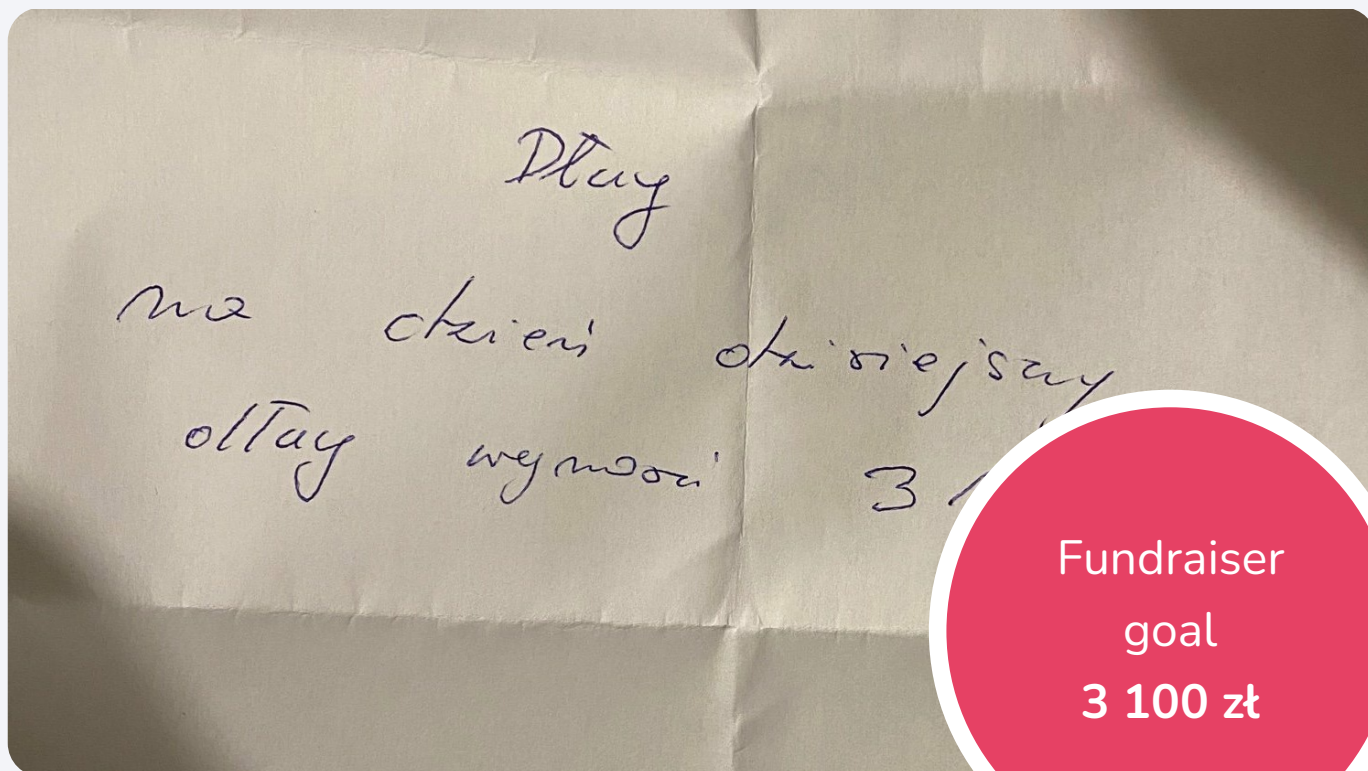 Długi
na dzień dzisiejszy
długi wynosi 3 1
Fundraiser
goal
3 100 zł